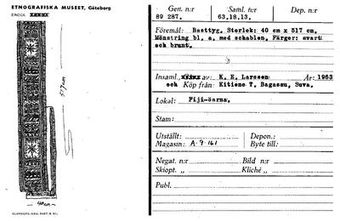 ETNOGRAFISKA MUSEET, Göteborg
517 cm
40 cm
Gen. n:r
Saml. n:r
Dep. n:r
89 287.
63,18.13.
Föremål: Basttyg, Storlek: 40 cm x 517 cm.
Mönstring bl. a. med schablon, Färger: svart
och brunt.
Insaml. av: K. E. Larsson År: 1963
och Köp från: Kitione T, Bagasau, Suva.
Lokal: Fiji-öarna.
Stam:
Utställt: Depon.:
Magasin: A·9·161 Byte till:
Negat. n:r Bild n:r
Skiopt. „ Kliché „
Publ.